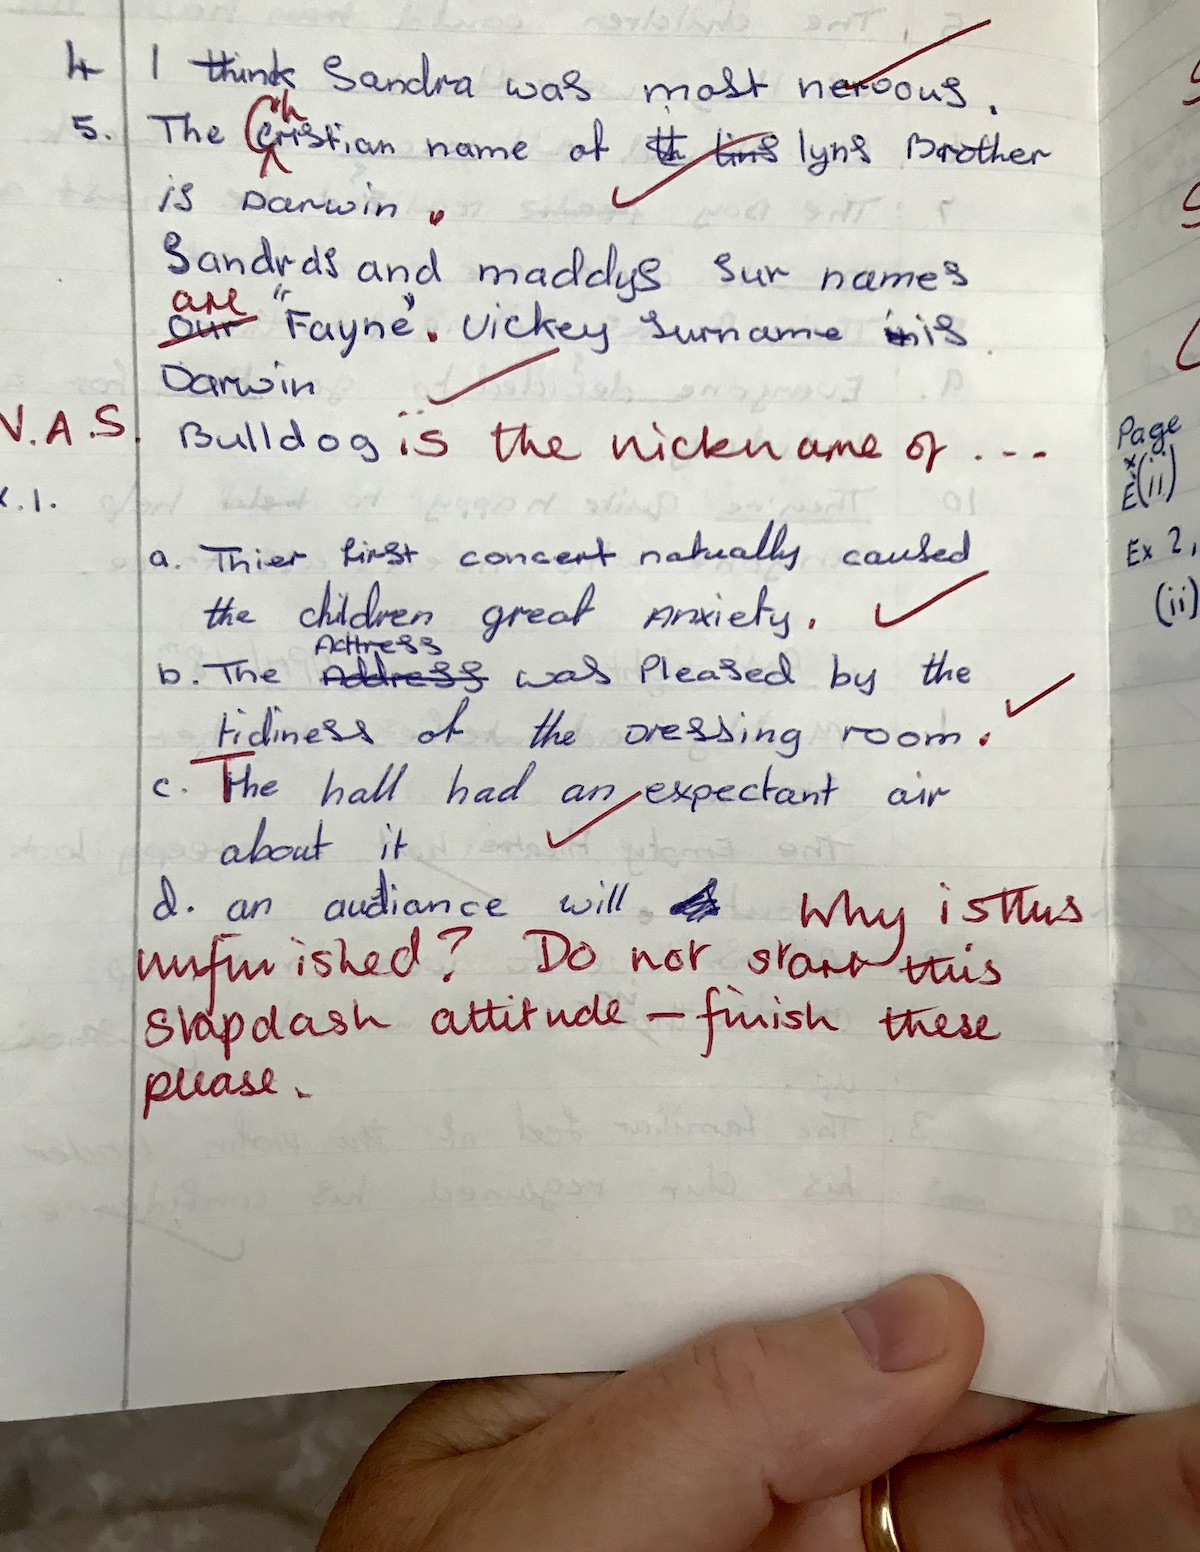 4 I think Sandra was most nervous.
5. The Christian name of lyns Brother
is Darwin.
Sandras and maddys sur names
are
our "Fayne". Vickey surname is
Darwin
V.A.S. Bulldog is the nickname of ...
x.1.
a. Thier first concert natually caused
the children great Anxiety.
Acttress
b. The Address was Pleased by the
tidiness of the Dressing room.
c. The hall had an expectant air
about it
d. an audiance will Why is this
unfinished? Do not start this
slapdash attitude - finish these
please.
Page
Ex (ii)
Ex 2,
(ii)